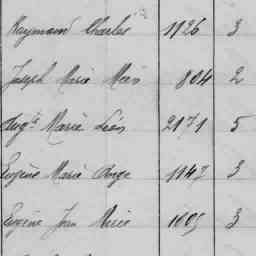 Raymond Charles 1926 3
Joseph Marie 804 2
Augte Marie Léon 2171 5
Eugène Marie Ange 1947 3
Eugène Jean Marie 1005 3